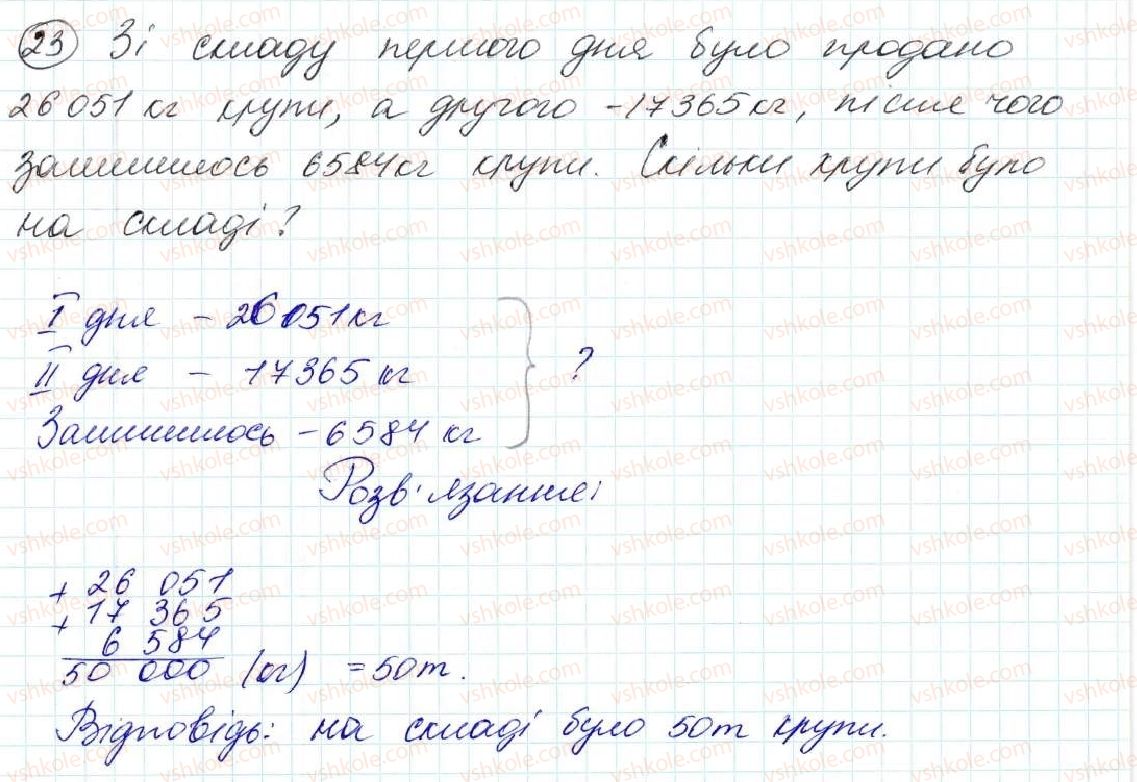 23 Зі складу першого дня було продано
26 051 кг крупи, а другого - 17365 кг, після чого
залишилось 6584 кг крупи. Скільки крупи було
на складі?
I дня - 26 051 кг
II дня - 17365 кг
Залишилось - 6584 кг
?
Розв'язання:
+ 26 051
+ 17 365
6 584
50 000 (кг) = 50т.
Відповідь: на складі було 50т крупи.